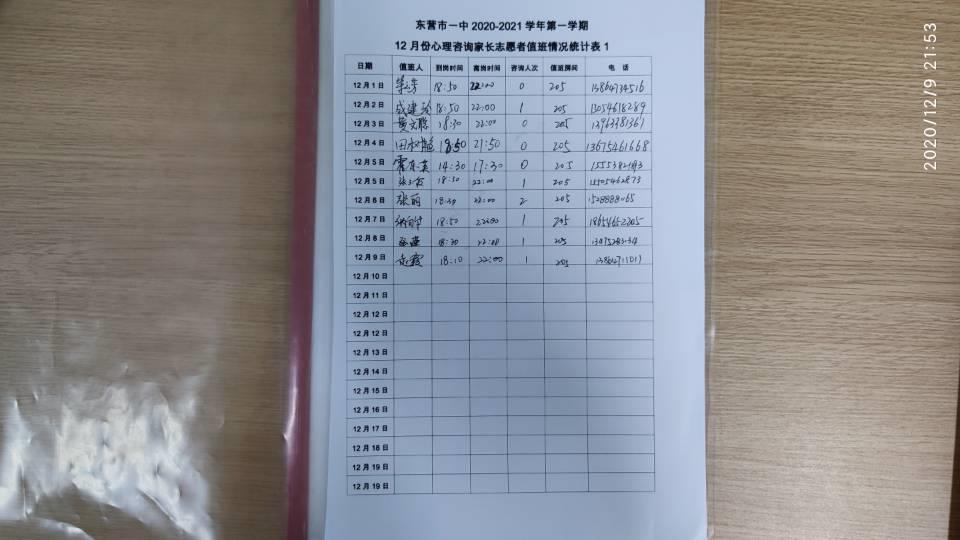 东营市一中 2020-2021 学年第一学期
12 月份心理咨询家长志愿者值班情况统计表 1
日期 值班人 到岗时间 离岗时间 咨询人次 值班房间 电 话
12 月 1 日 18:50 22:00 0 205 13864734516
12 月 2 日 成建玲 18:50 22:00 1 205 13054618289
12 月 3 日 黄文聪 18:30 22:00 0 205 13963381367
12 月 4 日 18:50 21:50 0 205 13675461668
12 月 5 日 14:30 17:30 0 205
12 月 5 日 18:30 22:00 1 205 15505462873
12 月 6 日 张丽 18:30 22:00 2 205
12 月 7 日 18:50 22:00 1 205 18654652205
12 月 8 日 18:30 22:00 1 205
12 月 9 日 18:10 22:00 1 205
12 月 10 日
12 月 11 日
12 月 12 日
12 月 12 日
12 月 13 日
12 月 14 日
12 月 15 日
12 月 16 日
12 月 17 日
12 月 18 日
12 月 19 日
12 月 19 日
2020/12/9 21:53